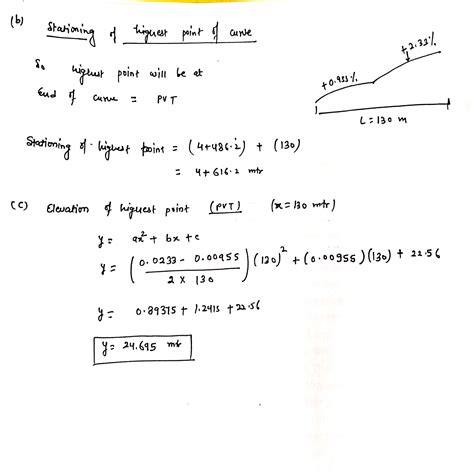 (b) Stationing of highest point of curve
So highest point will be at
End of curve = PVT
+0.955%
+2.33%
L = 130 m
Stationing of highest point = (4+486.2) + (130)
= 4+616.2 mtr
(C) Elevation of highest point (PVT) (x=130 mtr)
y = ax² + bx + c
y = (0.0233 - 0.00955 / 2 x 130) (130)² + (0.00955)(130) + 22.56
y = 0.89375 + 1.2415 + 22.56
y = 24.695 mtr